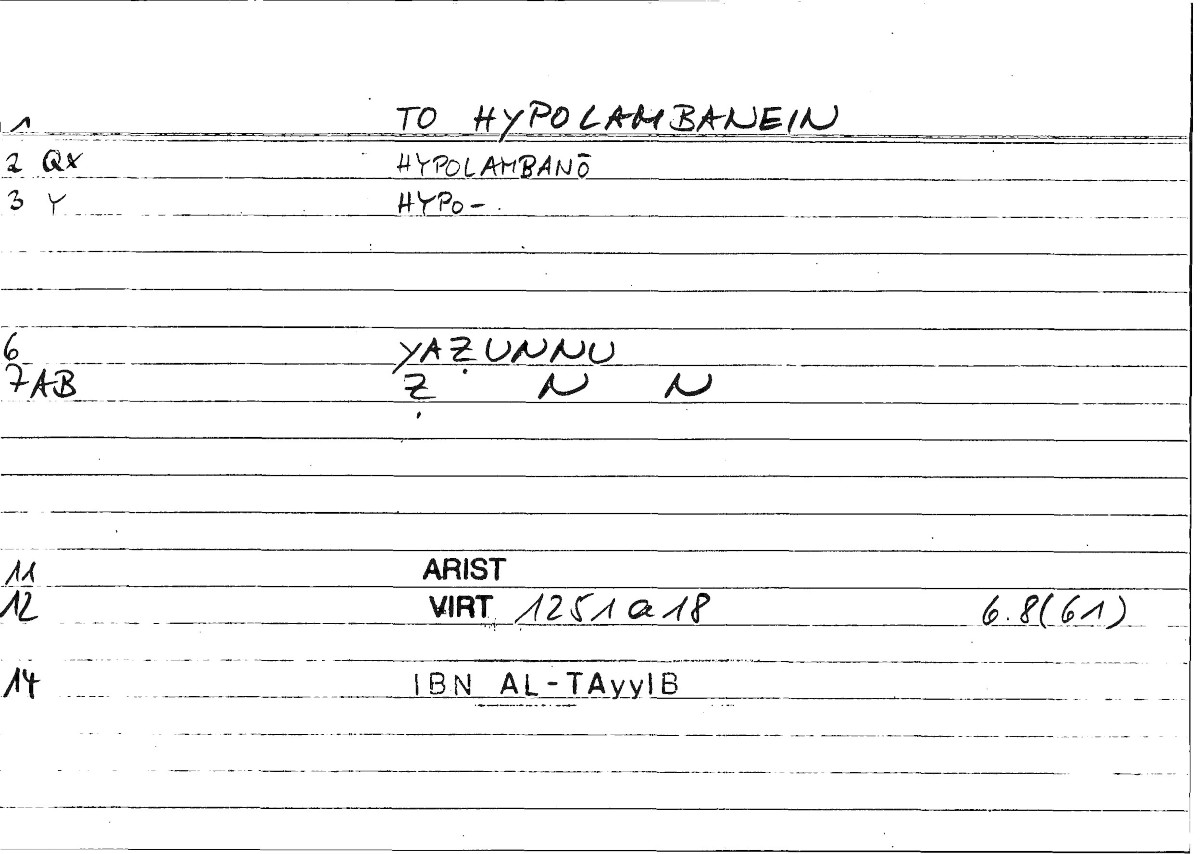 1 TO HYPOLAMBANEIN
2 QX HYPOLAMBANŌ
3 Y HYPO-
6 YAẒUNNU
7 AB Ẓ N N
11 ARIST
12 VIRT 1251a18 6.8(61)
14 IBN AL-TAyyIB